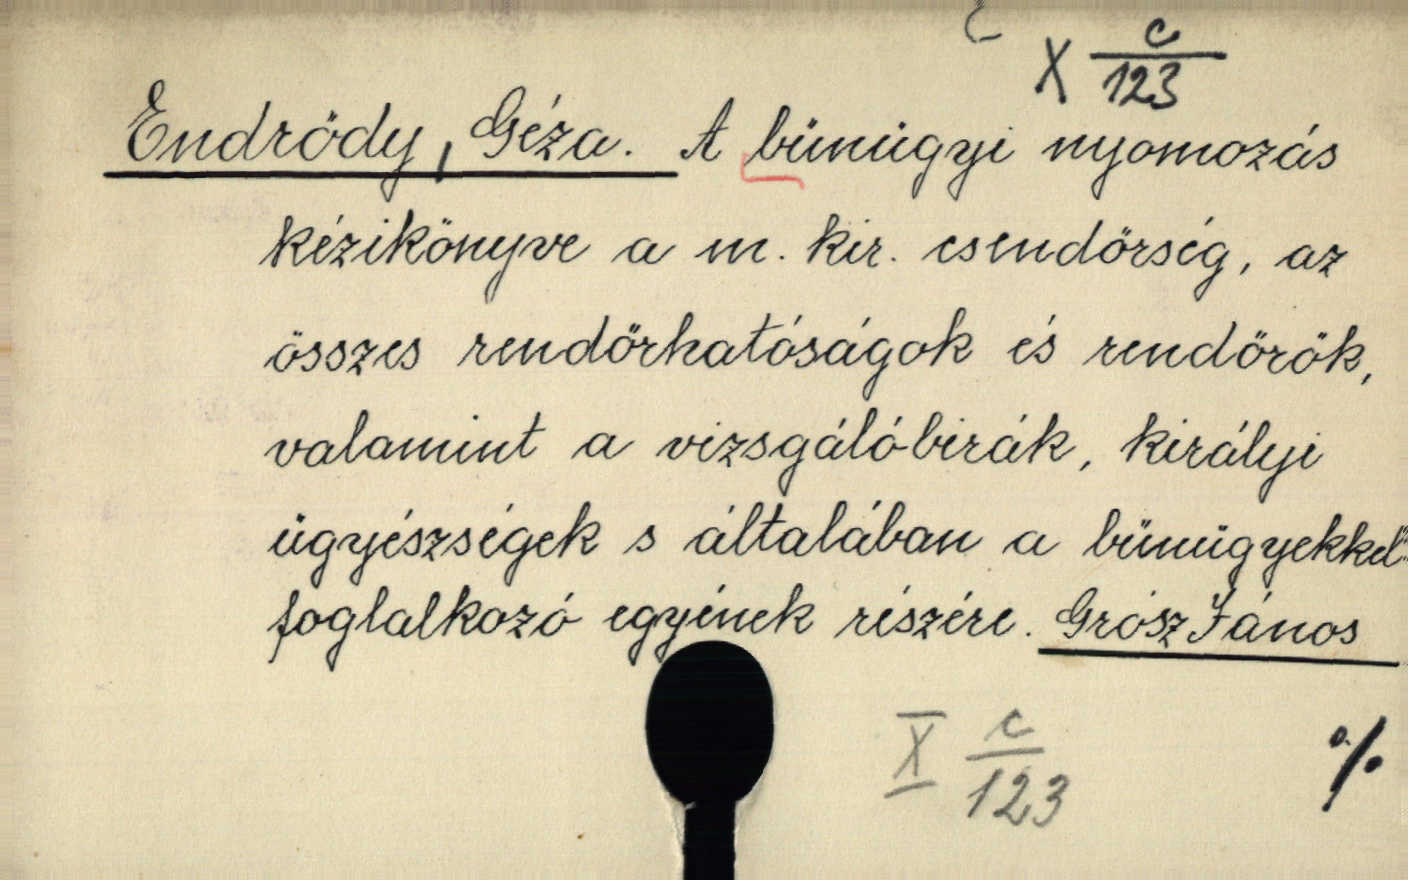 X c/123
Endrődy, Géza. A bünügyi nyomozás
kézikönyve a m. kir. csendőrség, az
összes rendőrhatóságok és rendőrök,
valamint a vizsgálóbirák, királyi
ügyészségek s általában a bünügyekkel
foglalkozó egyének részére. Grósz János
X c/123
%